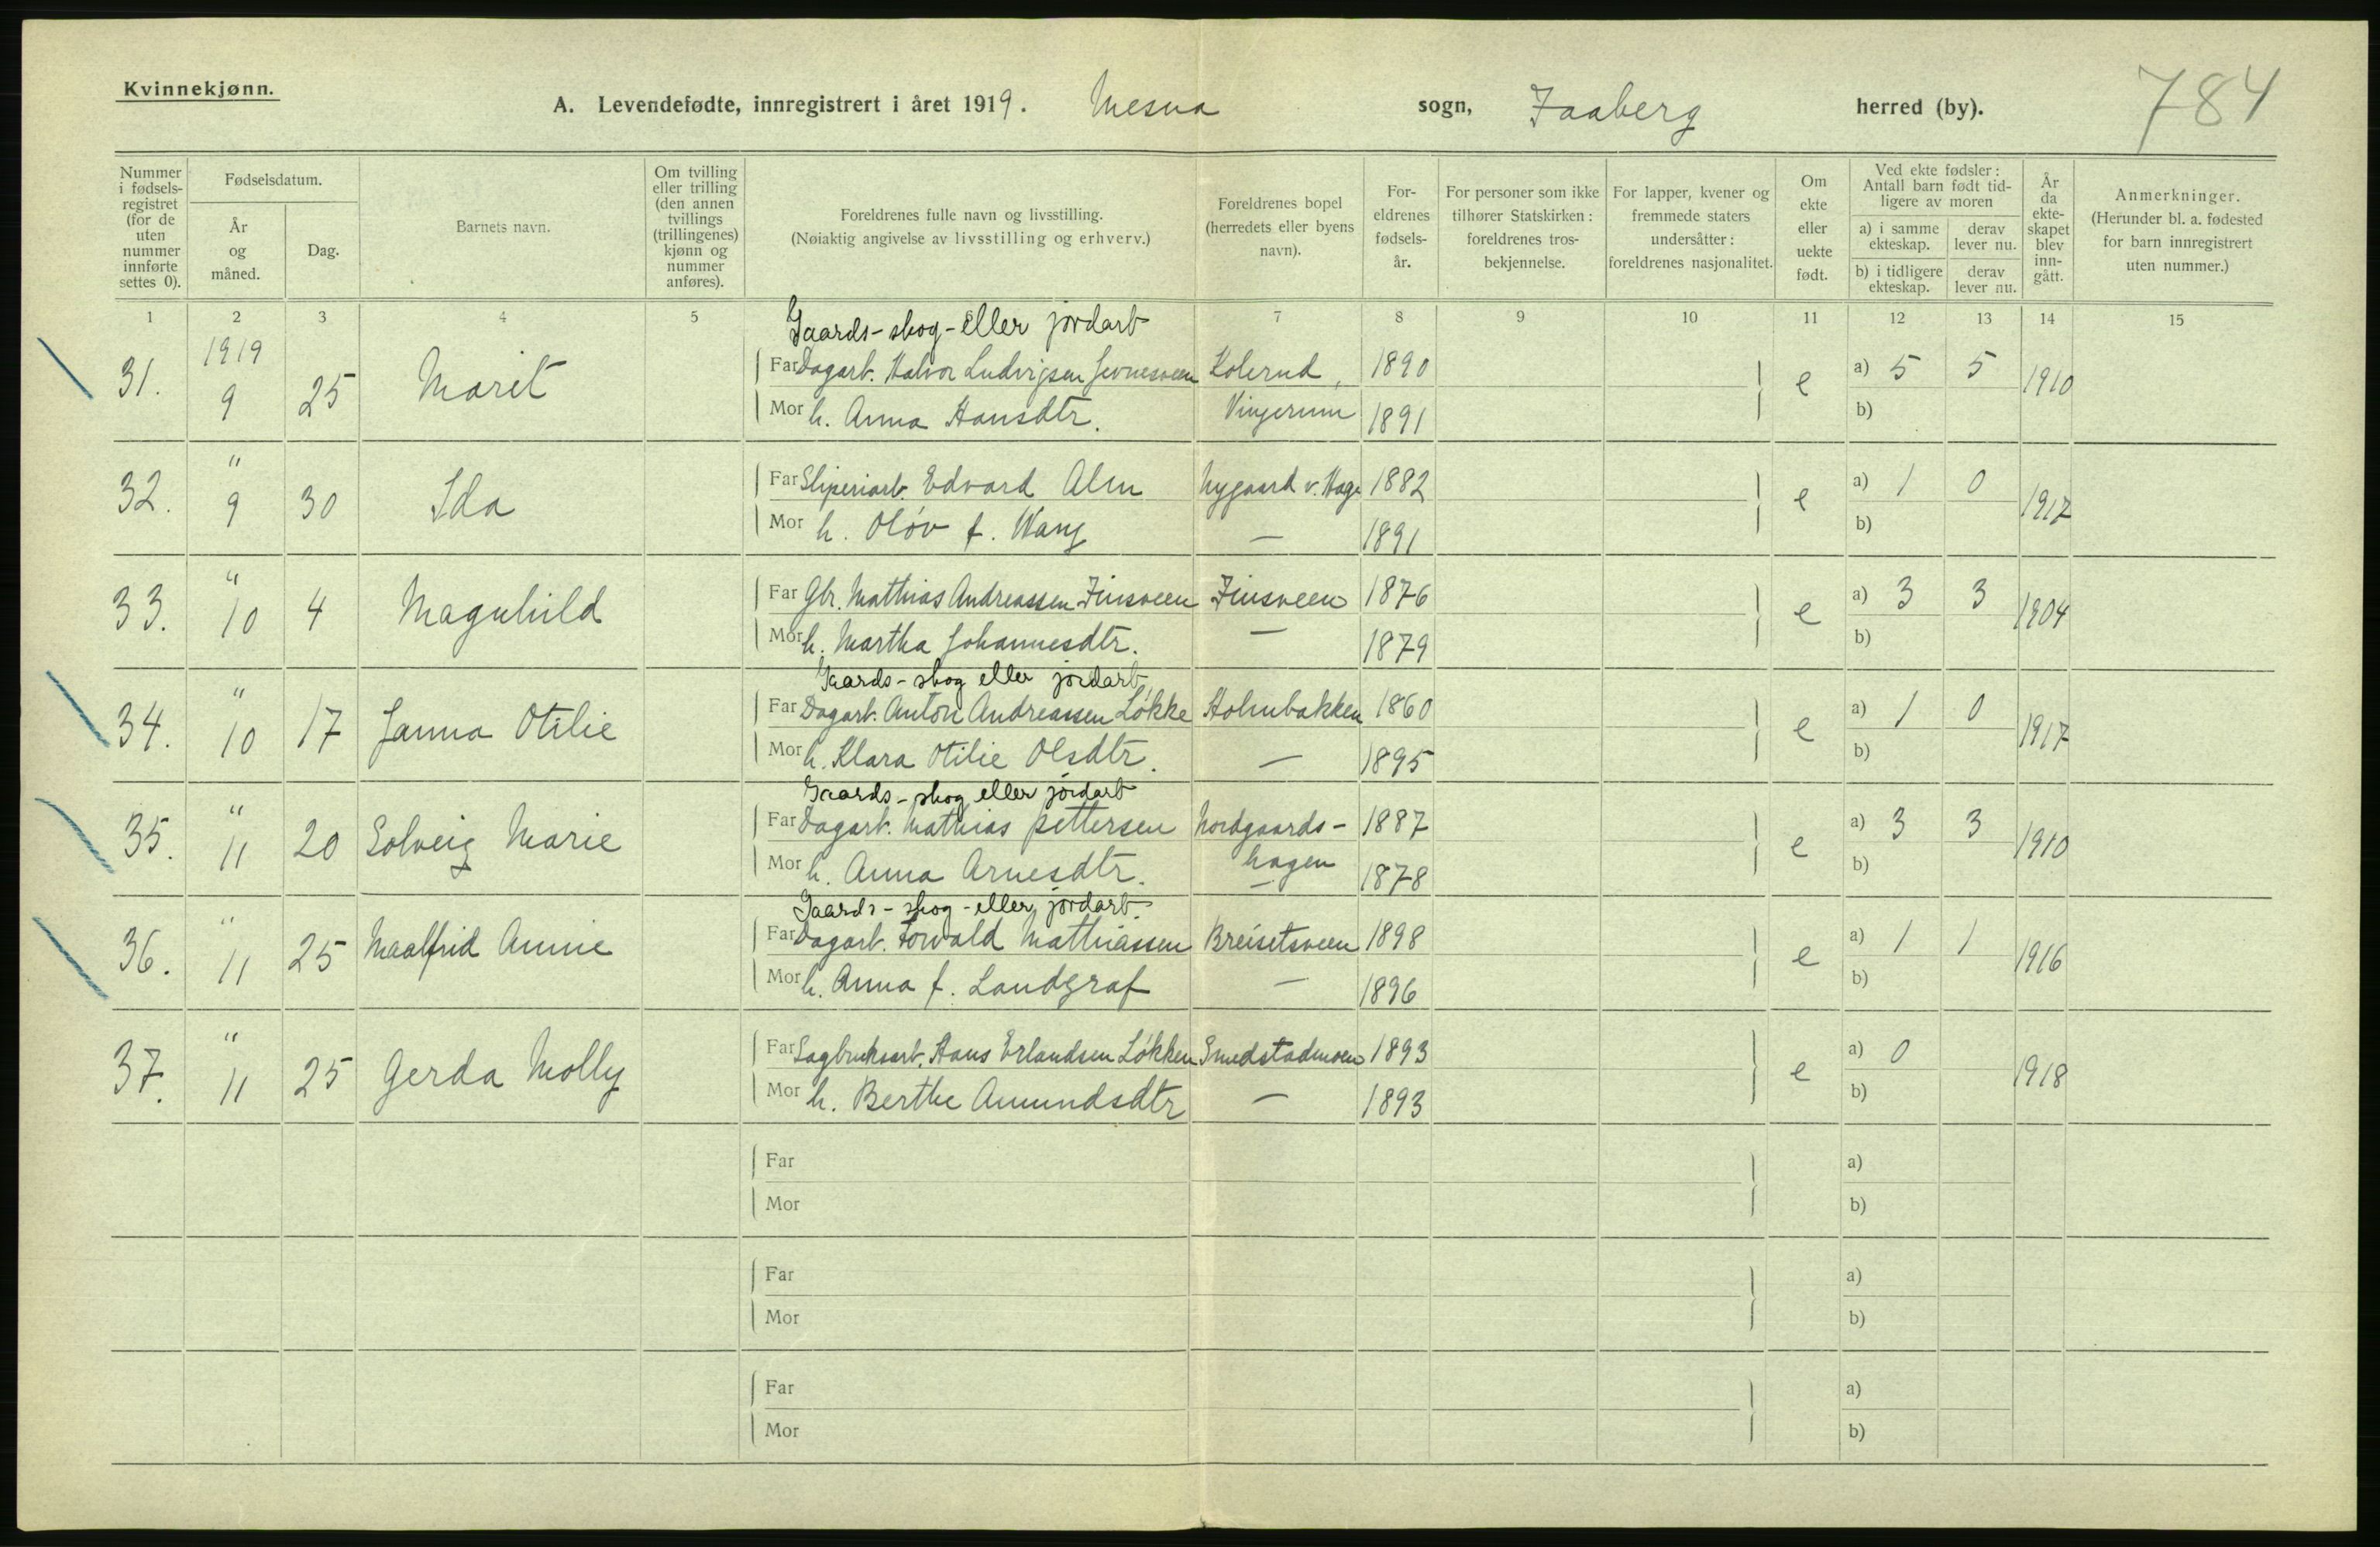 Kvinnekjønn.
A. Levendefødte, innregistrert i året 1919. Mesna sogn, Faaberg herred (by). 784
Nummer i fødsels-registret (for de uten nummer innførte settes 0).
Fødselsdatum.
År og måned.
Dag.
Barnets navn.
Om tvilling eller trilling (den annen tvillings (trillingenes) kjønn og nummer anføres).
Foreldrenes fulle navn og livsstilling.
(Nøiaktig angivelse av livsstilling og erhverv.)
Foreldrenes bopel (herredets eller byens navn).
For-eldrenes fødsels-år.
For personer som ikke tilhører Statskirken: foreldrenes tros-bekjennelse.
For lapper, kvener og fremmede staters undersåtter: foreldrenes nasjonalitet.
Om ekte eller uekte født.
Ved ekte fødsler: Antall barn født tid-ligere av moren
a) i samme ekteskap. derav lever nu.
b) i tidligere ekteskap. derav lever nu.
År da ekte-skapet blev inn-gått.
Anmerkninger.
(Herunder bl. a. fødested for barn innregistrert uten nummer.)
1 2 3 4 5 7 8 9 10 11 12 13 14 15
Gaards-skog-eller jordarb
31. 1919 9 25 Marit Far Dagarb. Halvor Ludvigsen Jevnesveen Kolerud, 1890 e a) 5 5 1910
Mor h. Anna Hansdtr. Vingerum 1891 b)
32. " 9 30 Ida Far Sliperiarb. Edvard Alm Nygaard v. Hage 1882 e a) 1 0 1917
Mor h. Oløv f. Wang — 1891 b)
33. " 10 4 Magnhild Far Gbr. Mathias Andreassen Finsveen Finsveen 1876 e a) 3 3 1904
Mor h. Martha Johannesdtr. — 1879 b)
Gaards-skog eller jordarb
34. " 10 17 Janna Otilie Far Dagarb. Anton Andreassen Løkke Holmbakken 1860 e a) 1 0 1917
Mor h. Klara Otilie Olsdtr. — 1895 b)
Gaards-skog eller jordarb
35. " 11 20 Solveig Marie Far Dagarb. Mathias Pettersen Nordgaards- 1887 e a) 3 3 1910
Mor h. Anna Arnesdtr. hagen — 1878 b)
Gaards-skog-eller jordarb.
36. " 11 25 Maalfrid Annie Far Dagarb. Torvald Mathiassen Breisetsveen 1898 e a) 1 1 1916
Mor h. Anna f. Landgraf — 1896 b)
37. " 11 25 Gerda Molly Far Sagbruksarb. Hans Erlandsen Løkken Smedstadmoen 1893 e a) 0 1918
Mor h. Berthe Amundsdtr — 1893 b)
Far a)
Mor b)
Far a)
Mor b)
Far a)
Mor b)